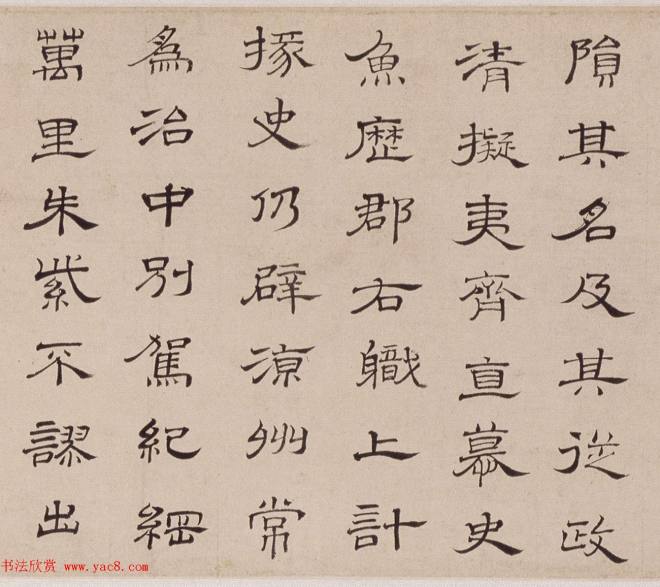 隕其名及其從政
清擬夷齊直慕史
魚歷郡右職上計
掾史仍辟涼州常
為治中別駕紀綱
萬里朱紫不謬出
书法欣赏 www.yac8.com